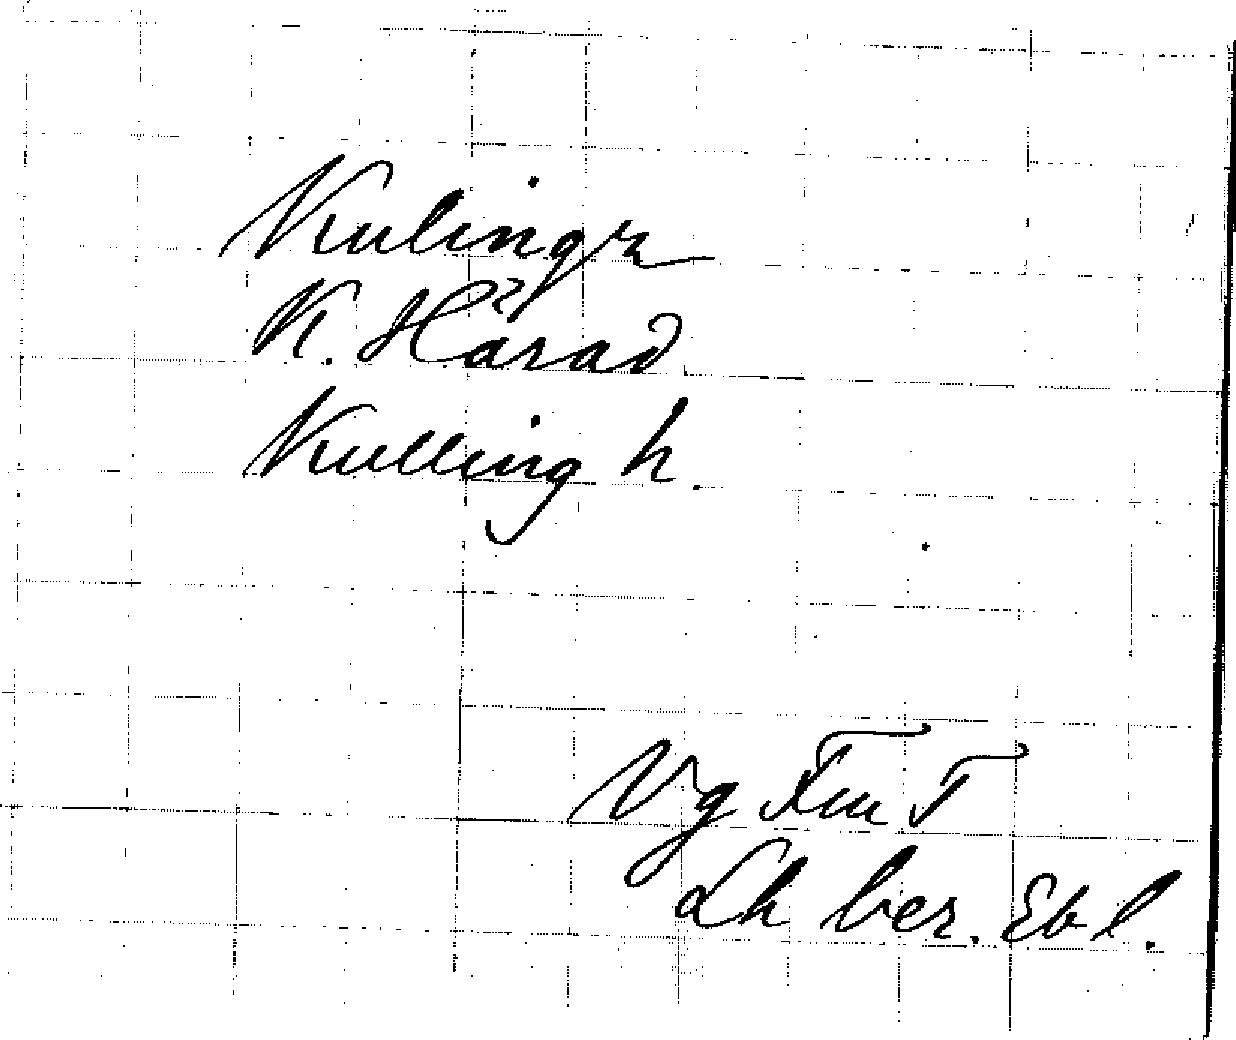 Kulingz
K. Härad
Kulling h.
Vg Fm T
Lh ber. Ebl.